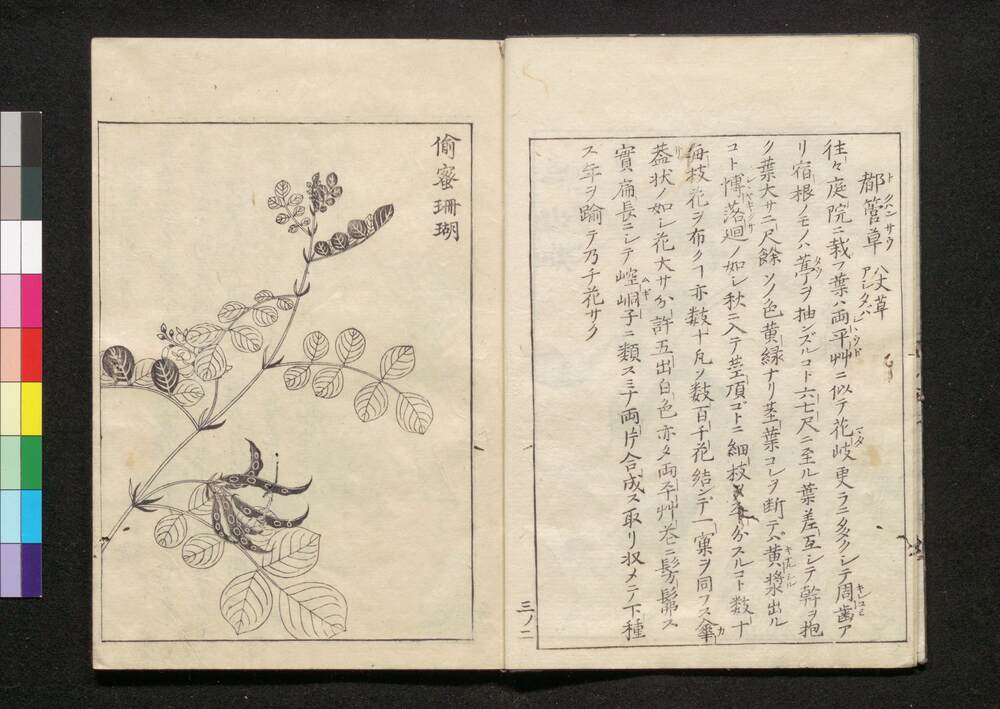 都管草 八丈草
トクワンサウ アシタバ
往々庭院ニ栽フ葉ハ両平艸ニ似テ花岐更ラニ多クシテ周歯ア
リ宿根ノモノハ薹ヲ抽ンズルコト六七尺ニ至ル葉差互シテ幹ヲ抱
ク葉大サ二尺餘ソノ色黄緑ナリ茎葉コレヲ断テバ黄漿出ル
コト博落廻ノ如シ秋ニ入テ茎頂ゴトニ細枝ヲ分スルコト数十
毎枝花ヲ布ク亦数十凡ソ数百千花結ンデ一窠ヲ同フス傘
蓋状ノ如シ花大サ分許五出白色亦タ両平艸花ニ髣髴ス
實扁長ニシテ崆峒子ニ類ス ミナ両片合成ス取リ収メテ下種
ス年ヲ踰テ乃チ花サク
三ノ二
偷蜜珊瑚